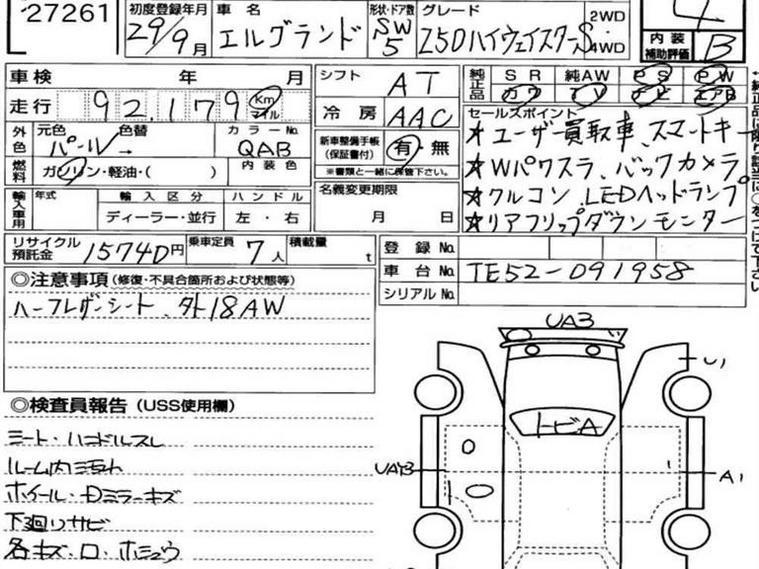 27261
初度登録年月 29年9月
車名 エルグランド
形状・ドア数 SW 5
グレード 250ハイウェイスターS
2WD 4WD
4
内装補助評価 B
車検 年 月
走行 92,179 Km マイル
シフト AT
冷房 AAC
純正品 SR 純AW PS PW
カワ TV ナビ エアB
セールスポイント
★ユーザー買取車、スマートキー
★Wパワスラ、バックカメラ。
★クルコン、LEDヘッドランプ
★リアフリップダウンモニター
外色 元色 色替 カラーNo.
パール→ QAB
燃料 ガソリン・軽油・( ) 内装色
新車整備手帳(保証書付) 有・無
※書類と一緒に保管下さい。
名義変更期限
月 日
輸入車用 年式 輸入区分 ハンドル
ディーラー・並行 左・右
リサイクル預託金 15740円
乗車定員 7人
積載量 t
登録No.
車台No. TE52-091958
シリアルNo.
◎注意事項(修復・不具合箇所および状態等)
ハーフレザーシート、外18AW
◎検査員報告(USS使用欄)
シート・ハンドルスレ
ルーム内汚れ
ホイール・Dミラーキズ
下廻りサビ
各キズ・凹・ホシュウ
UA3
U1
トビA
A1